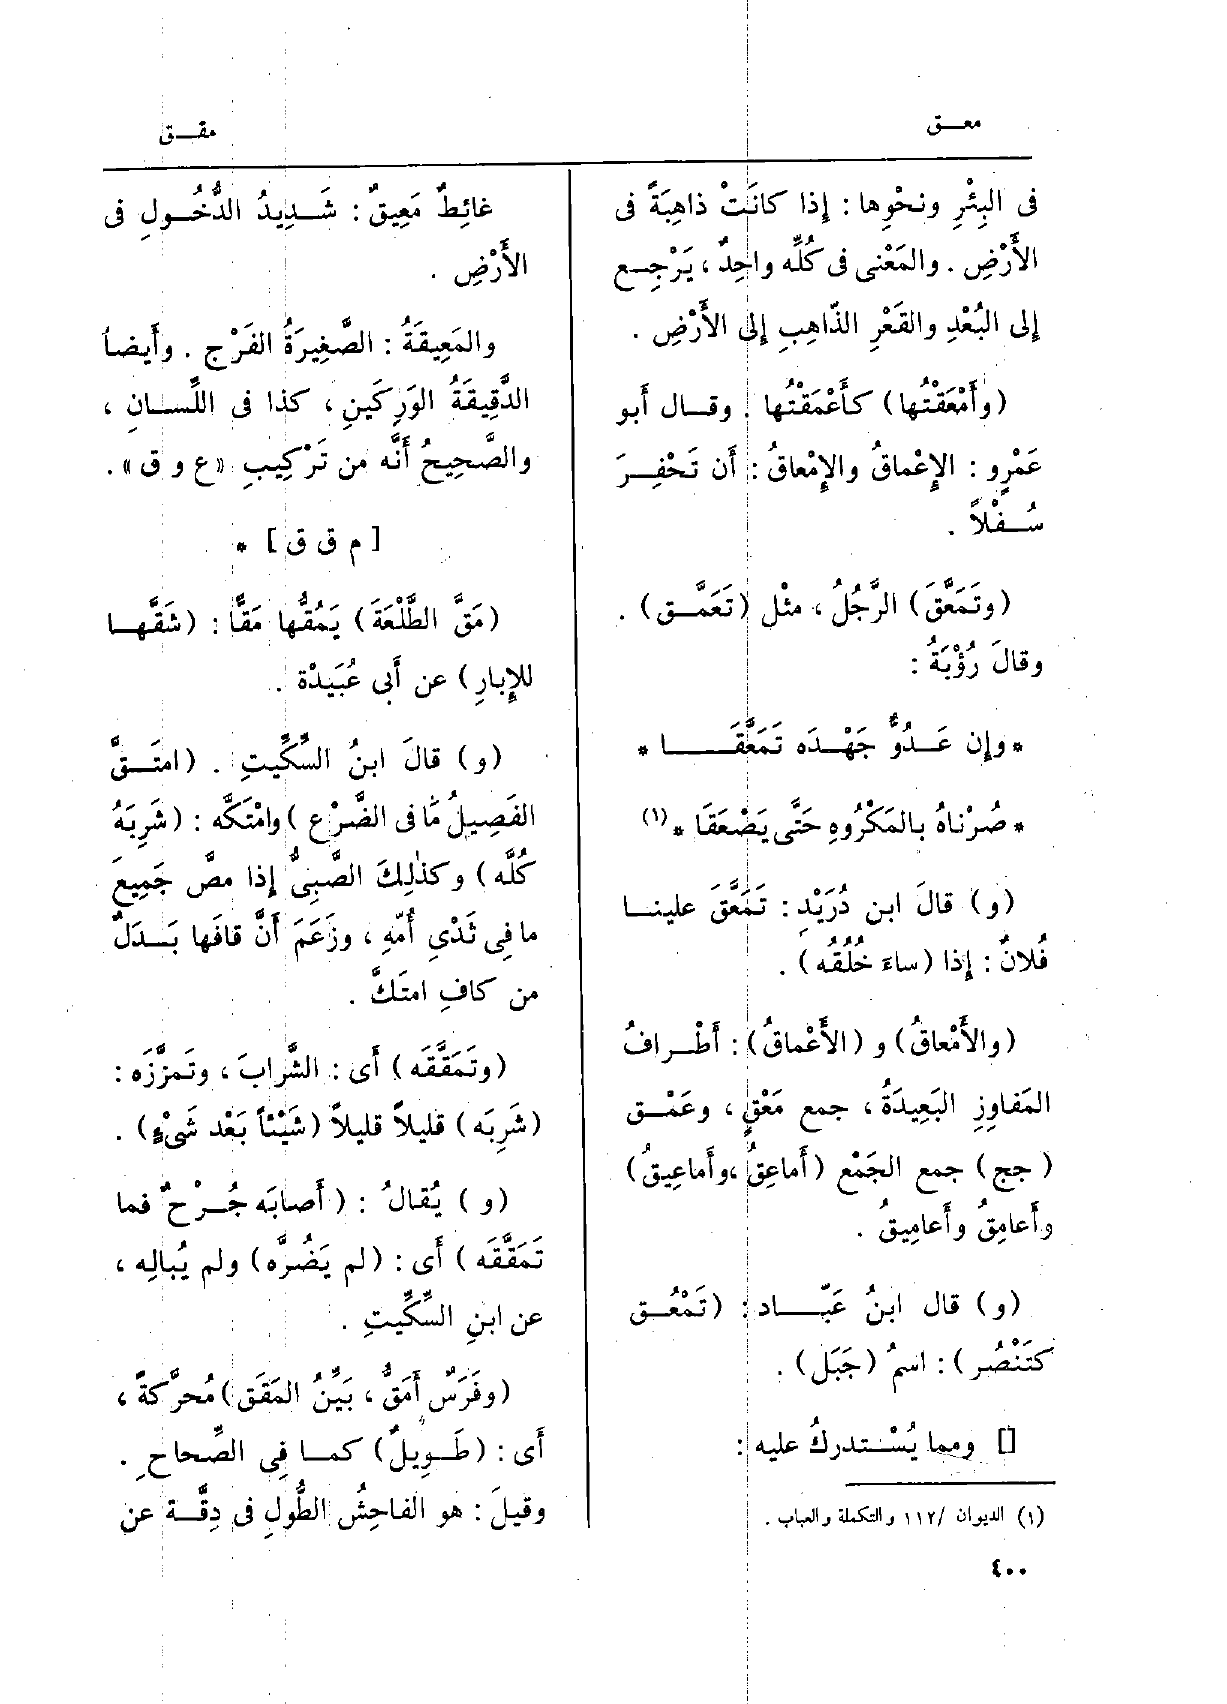 معـق
مقـق
فى البِئْرِ ونحْوِها : إذا كانَتْ ذاهِبَةً فى
الأَرْضِ . والمَعْنى فى كُلِّه واحِدٌ ، يَرْجِـع
إلى البُعْدِ والقَعْرِ الذّاهِبِ إلى الأَرْضِ .
(وأَمْعَقْتُها) كأَعْمَقْتُها . وقـال أَبو
عَمْرٍو : الإِعْماقُ والإِمْعاقُ : أَن تَحْفِـرَ
سُـفْلاً .
(وتَمَعَّقَ) الرَّجُلُ ، مثْل (تَعَمَّـق) .
وقالَ رُؤْبَةُ :
* وإن عَـدُوٌّ جَهْـدَه تَمَعَّقَـــا *
* صُرْناهُ بالمَكْرُوهِ حَتَّى يَصْعَقَا * (١)
(و) قالَ ابن دُرَيْدٍ : تَمَعَّقَ علينـا
فُلانٌ : إذا (ساءَ خُلُقُه) .
(والأَمْعاقُ) و (الأَعْماقُ) : أَطْـرافُ
المَفاوِزِ البَعِيدَةُ ، جمع مَعْقٍ ، وعَمْـق
(جج) جمع الجَمْع (أَماعِقُ ،وأَماعِيقُ)
وأَعامِقُ وأَعامِيقُ .
(و) قال ابنُ عَبّــاد : (تَمْعُـق
كتَنْصُر) : اسمُ (جَبَل) .
[] ومما يُسْـتدركُ عليه :
(١) الديوان /١١٢ والتكملة والعباب .
٤٠٠
غائِطٌ مَعِيقٌ : شَـدِيدُ الدُّخُـولِ فى
الأَرْضِ .
والمَعِيقَةُ : الصَّغِيرَةُ الفَرْج . وأَيضاً
الدَّقِيقَةُ الوَرِكَينِ ، كذا فى اللِّسـانِ ،
والصَّحِيحُ أَنَّه من تَرْكِيبِ «ع و ق» .
[ م ق ق ] *
(مَقَّ الطَّلْعَةَ) يَمُقُّها مَقًّا : (شَقَّهـا
للإِبارِ) عن أَبى عُبَيْدَة .
(و) قالَ ابنُ السِّكِّيتِ . (امتَـقَّ
الفَصِيلُ ما فى الضَّرْع )وامْتَكَّه : (شَرِبَهُ
كُلَّه) وكذٰلِكَ الصَّبِىُّ إذا مصَّ جَمِيعَ
ما فِى ثَدْىِ أُمّهِ ، وزَعَمَ أَنَّ قافَها بَـدَلٌ
من كافِ امتَكَّ .
(وتَمَقَّقَه) أَى : الشَّرابَ ، وتَمزَّزَه :
(شَرِبَه) قليلاً قليلاً (شَيْئاً بَعْد شَىْءٍ) .
(و) يُقالُ : (أَصابَه جُـرْحٌ فما
تَمَقَّقَه) أَى : (لم يَضُرَّه) ولم يُبالِه ،
عن ابنِ السِّكِّيتِ .
(وفَرَسٌ أَمَقُّ ، بَيِّنُ المَقَق) مُحرَّكةً ،
أَى : (طَـوِيلٌ) كمـا فِى الصِّحاح .
وقيلَ : هو الفاحِشُ الطُّولِ فى دِقَّـة عن